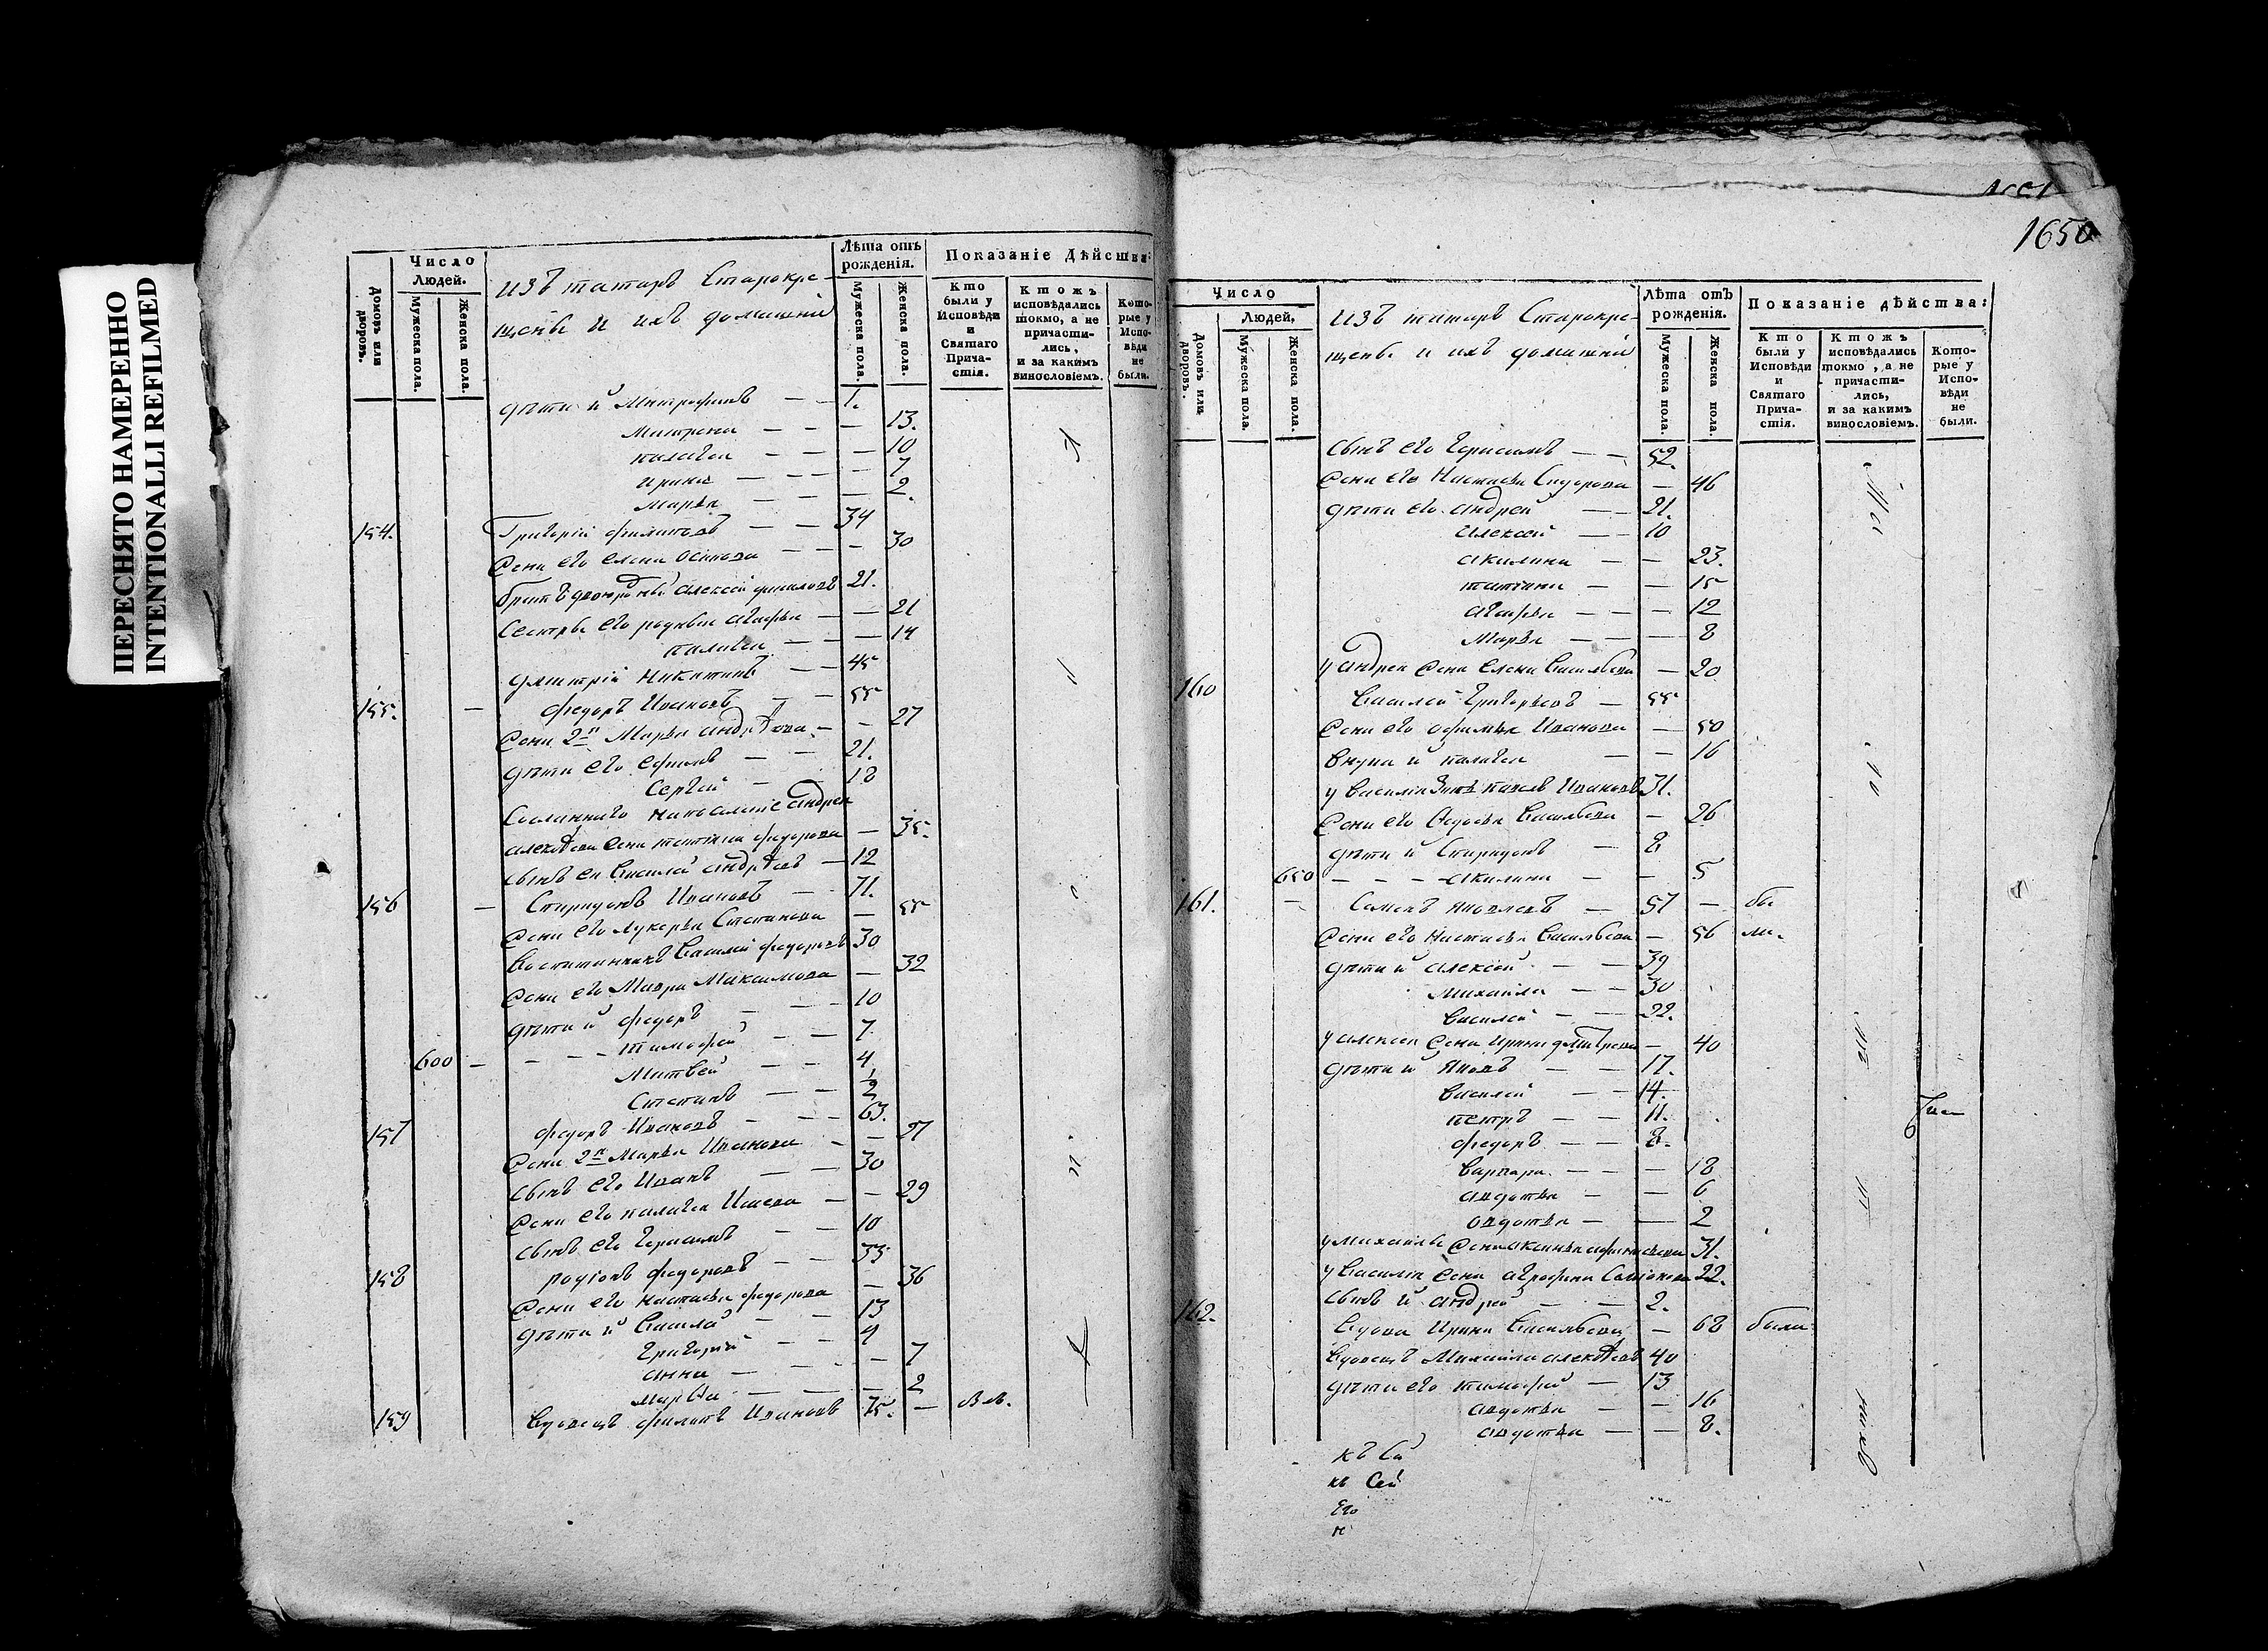 ПЕРЕСНЯТО НАМЕРЕННО
INTENTIONALLI REFILMED
1650
Домовъ или дворовъ.
Число Людей.
Мужеска пола.
Женска пола.
изъ татаръ Старокре-
щены и ихъ домашнiи
Лѣта отъ рожденія.
Мужеска пола.
Женска пола.
Показаніе Дѣйства:
Кто были у Исповѣди и Святаго Прича-стія.
Ктожъ исповѣдались токмо, а не причасти-лись, и за какимъ винословіемъ.
Кото-рые у Испо-вѣди не были.
дѣти и Митрофанъ — — 1.
Матрена — — — 13.
палагея — — — 10
ирина — — — 7
марѳа — — — 2.
154. Григорiй филиповъ — — 34
жена его елена осипова — — — 30
братъ двоюродный алексей 21.
Сестры его родныя агафья — — 21
палагея — — 14
дмитрiй Никитинъ — — 45
155. — федоръ Ивановъ — — 55
жена 2я Марѳа андрѣева — — 27
дѣти его ефимъ — — 21.
Сергей — — 18
Сосланнаго на поселенiе андрея
алексѣева жена татiяна федорова — 35.
сынъ ея Василей андрѣевъ — 12
156 — Спиридонъ Ивановъ — — 71.
жена его лукерья Степанова — 55
Воспитанникъ Василей федоровъ 30
жена его Мавра Максимова — 32
дѣти и федоръ — — 10
600 — — — — тимофей — — 7.
Матвей — — 4
Степанъ — — 1/2
157 федоръ Ивановъ — — — 63.
жена 2я Марѳа Иванова — — 27
сынъ его Иванъ — — 30
жена его палагея — — 29
сынъ его герасимъ — — 10
158 родiонъ федоровъ — — 33
жена его настасья федорова — 36
дѣти и Василей — — 13
григорiй — — 4
анна — — — 7
марѳа — — — 2
159 Вдовецъ филипъ Ивановъ 75. —
Домовъ или дворовъ.
Число Людей.
Мужеска пола.
Женска пола.
изъ татаръ Старокре-
щены и ихъ домашнiи
Лѣта отъ рожденія.
Мужеска пола.
Женска пола.
Показаніе дѣйства:
Кто были у Исповѣди и Святаго Прича-стія.
Ктожъ исповѣдались токмо, а не причасти-лись, и за какимъ винословіемъ.
Кото-рые у Испо-вѣди не были.
сынъ его герасимъ — — 52.
жена его Настасья Сидорова — 46
дѣти его андрей — — 21.
алексей — — 10
акилина — — 23.
татiяна — — 15
агафья — — — 12
марѳа — — — 8
у андрея жена елена Васильева — 20
160 Василей григорьевъ — 55
жена его офимья Иванова — 50
внука и палагея — — 16
у василiя зять павелъ Ивановъ 31.
жена его Ѳедосья Васильева — 26
дѣти и Спиридонъ — 8
650 — — — — акилина — — 5
161. — Семенъ яковлевъ — 57 — бы
жена его Настасья Васильева — 56 ли.
дѣти и алексей — — 39
михаила — — 30
василей — — 22.
у алексея жена ирина дмитрева — 40
дѣти и яковъ — — 17.
василей — — 14.
петръ — — 11.
федоръ — — 8.
варвара — — — 18
авдотья — — 6
овдотья — — 2
у михаилы жена аксинья афанасьева 31.
у василiя жена агрофина Самсонова 22.
сынъ и андрей — — 2.
162. Вдова Ирина Васильева — 68 были
Вдовецъ Михаила алексѣевъ 40
дѣти его тимофей — 13
авдотья — — 16
авдотья — — 8.
къ Са
къ Сей
Его
н